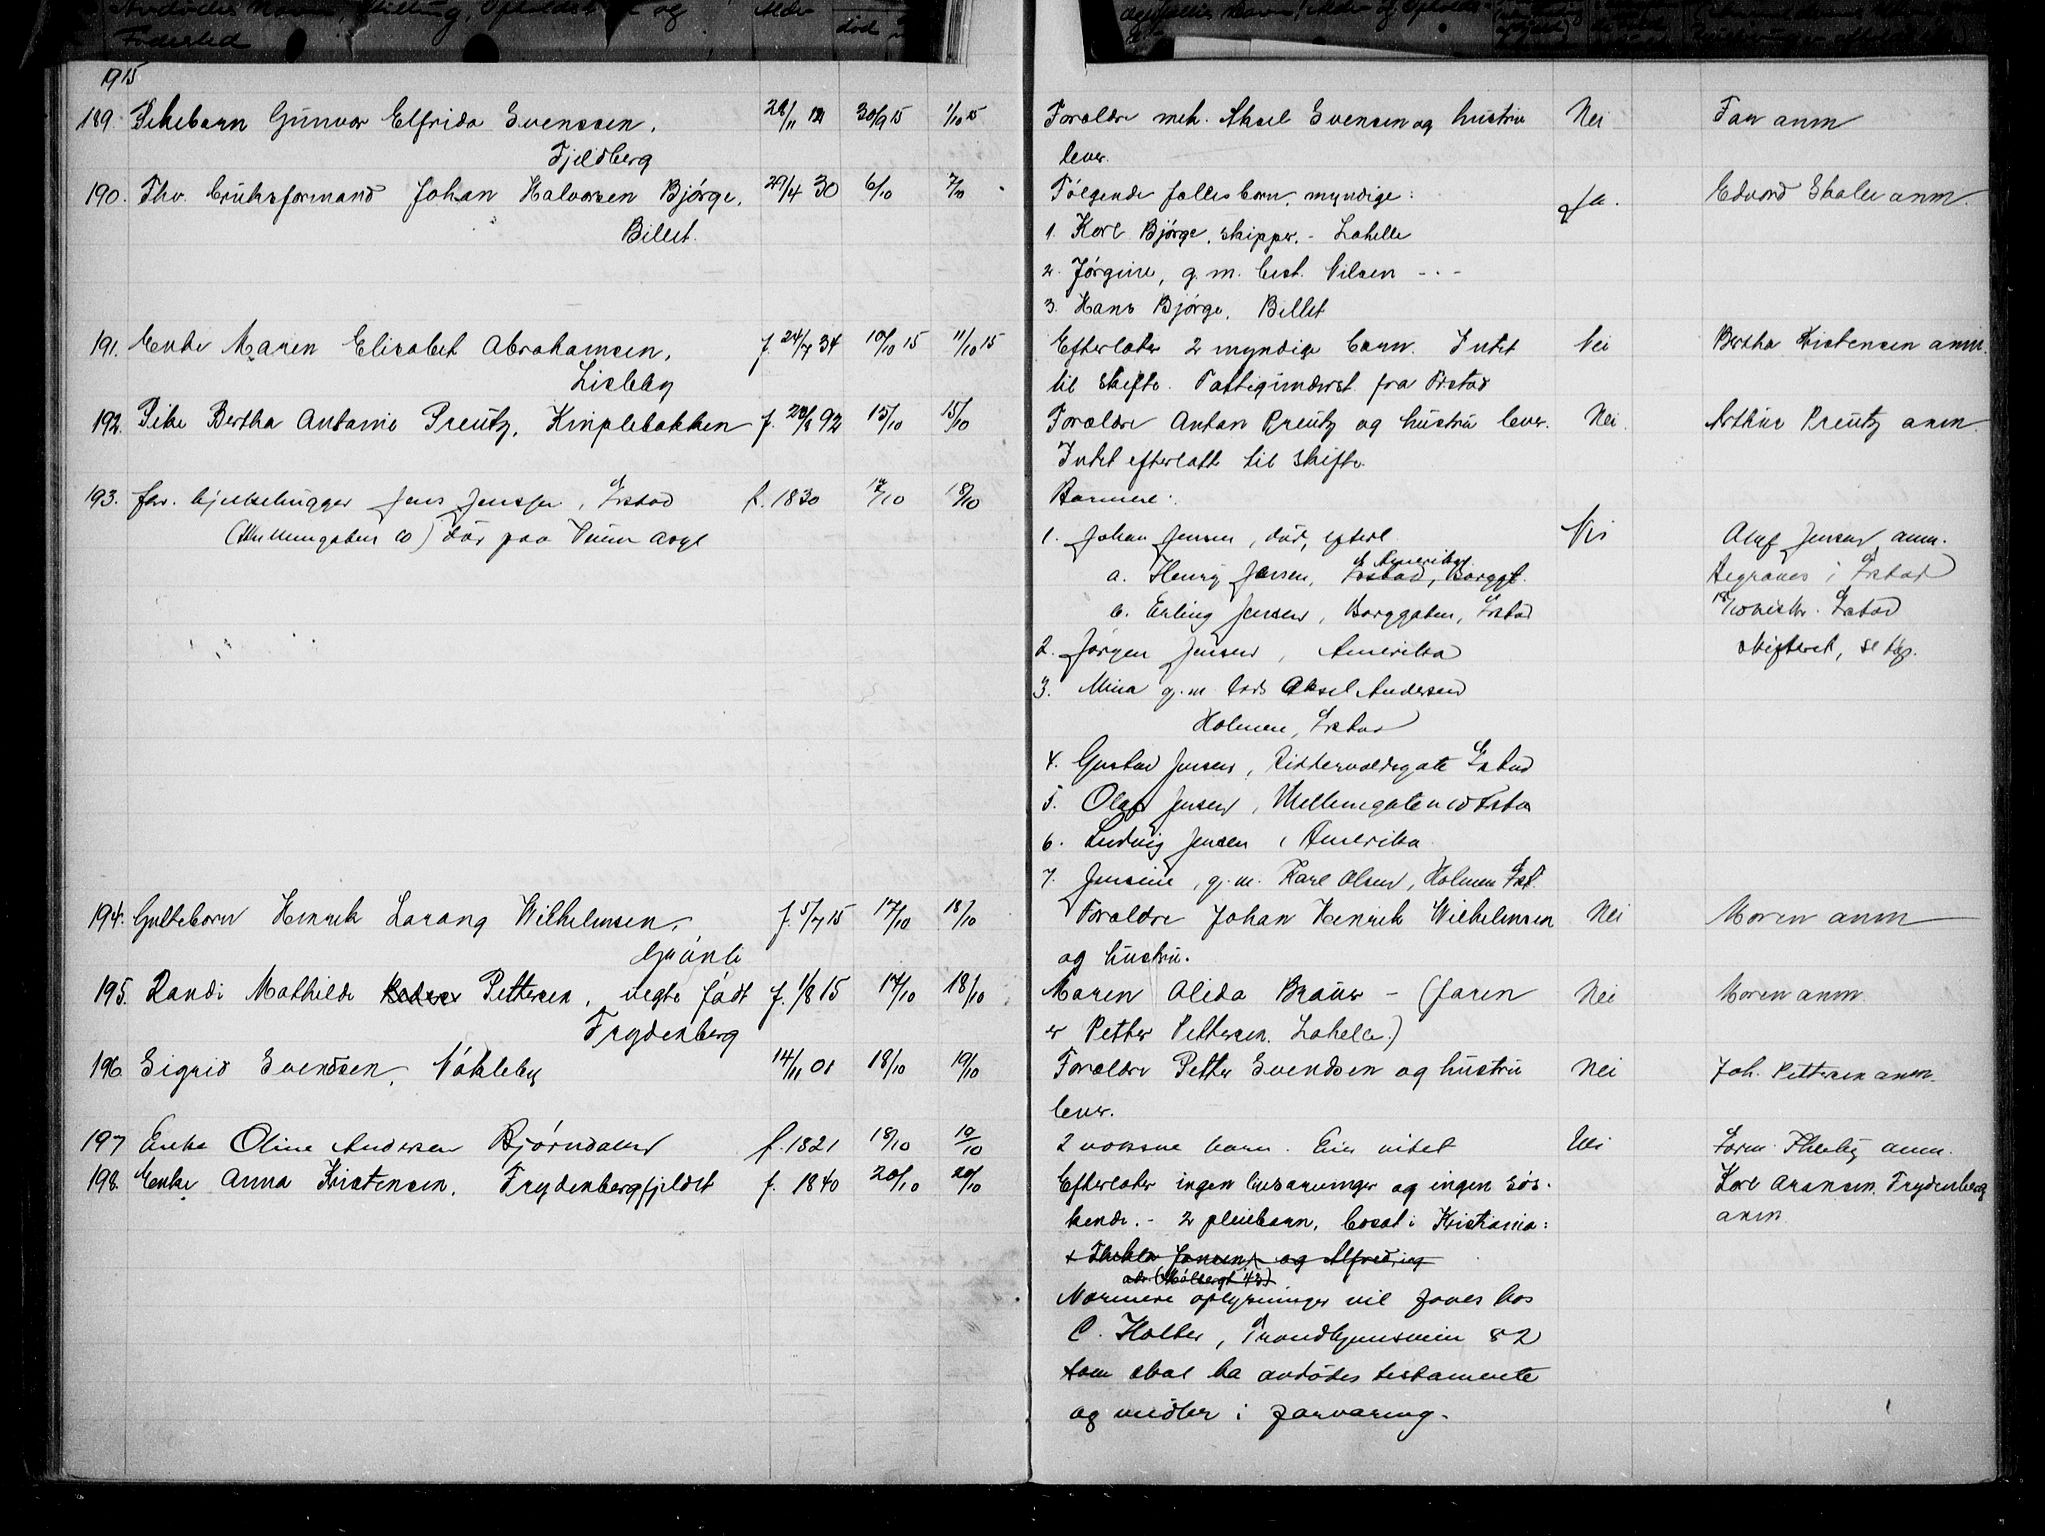 Fødested
død
1915
189. Pikebarn Gunvor Elfrida Svenssen,
28/11 30/9 15 1/10 15
Fjeldberg
190. Fhv. bruksformand Johan Halvorsen Bjørge,
29/4 30 6/10 7/10
Billet.
191. Enke Maren Elisabet Abrahamsen,
f. 24/7 34 10/10 15 11/10 15
Lisleby
192. Pike Bertha Antonie Preutz, Kniplebakken
f. 23/8 92 15/10 15/10
193. fhv. bjelkehugger Jens Jensen, Frstad
f. 1830 17/10 18/10
død paa Veum asyl
194. Guttebarn Henrik Lorang Wilhelmsen,
f. 5/7 15 17/10 18/10
Grønli
195. Randi Mathilde Pettersen, uegte født
f. 1/8 15 17/10 18/10
Frydenberg
196. Sigrid Svendsen, Nøkleby
14/11 01 18/10 19/10
197 Enke Oline Andersen Bjørndalen
f. 1821 18/10 19/10
198. Enke Anna Kristensen, Frydenbergfjeldet
f. 1840 20/10 20/10
Forældre mek. Aksel Svensen og hustru
Nei
Far anm
lever.
Følgende fælles barn, myndige:
Ja.
Edvard Skolle anm.
1. Karl Bjørge, skipper, - Lahelle
2. Jørgine, g. m. best. Nilsen - . -
3. Hans Bjørge, Billet
Efterlater 2 myndige barn. Intet
Nei
Bertha Kristensen anm.
til skifte. Fattigunderst. fra Frstad
Forældre Anton Preutz og hustru lever.
Nei.
Arthur Preutz anm.
Intet efterlatt til skifte.
Barnene:
1. Johan Jensen, død, efterl.
Nei
Olaf Jensen anm.
Amerika
a. Henry Jensen, Frstad, Borggt.
Begraves i Frstad
b. Erling Jensen, Borggaten, Frstad
18/10 Frstad
2. Jørgen Jensen, Amerika
skifteret, se
3. Mina g. m. Aksel Andersen
Holmen, Frstad
4. Gustav Jensen, Riddervoldsgate Frstad
5. Olaf Jensen, Mellemgaten 10 Frstad
6. Ludvig Jensen, Amerika
7. Jensine, g. m. Karl Olsen, Holmen Frst.
Forældre Johan Henrik Wilhelmsen
Nei
Moren anm
og hustru.
Maren Alida Braur - (faren
Nei
Moren anm.
er Petter Pettersen. Lahelle.)
Forældre Petter Svendsen og hustru
Nei
Joh. Pettersen anm.
lever.
2 voksne barn. Eier intet
Nei
anm.
Efterlater ingen livsarvinger og ingen søs-
Karl Aronsen, Frydenberg
kende. - 2 pleiebarn, bosat i Kristiania:
anm.
Thekla Jansen og Alfred
Nærmere oplysninger vil faaes hos
C. Holter, Trondhjemsveien 82
som skal ha avdødes testamente
og midler i forvaring.